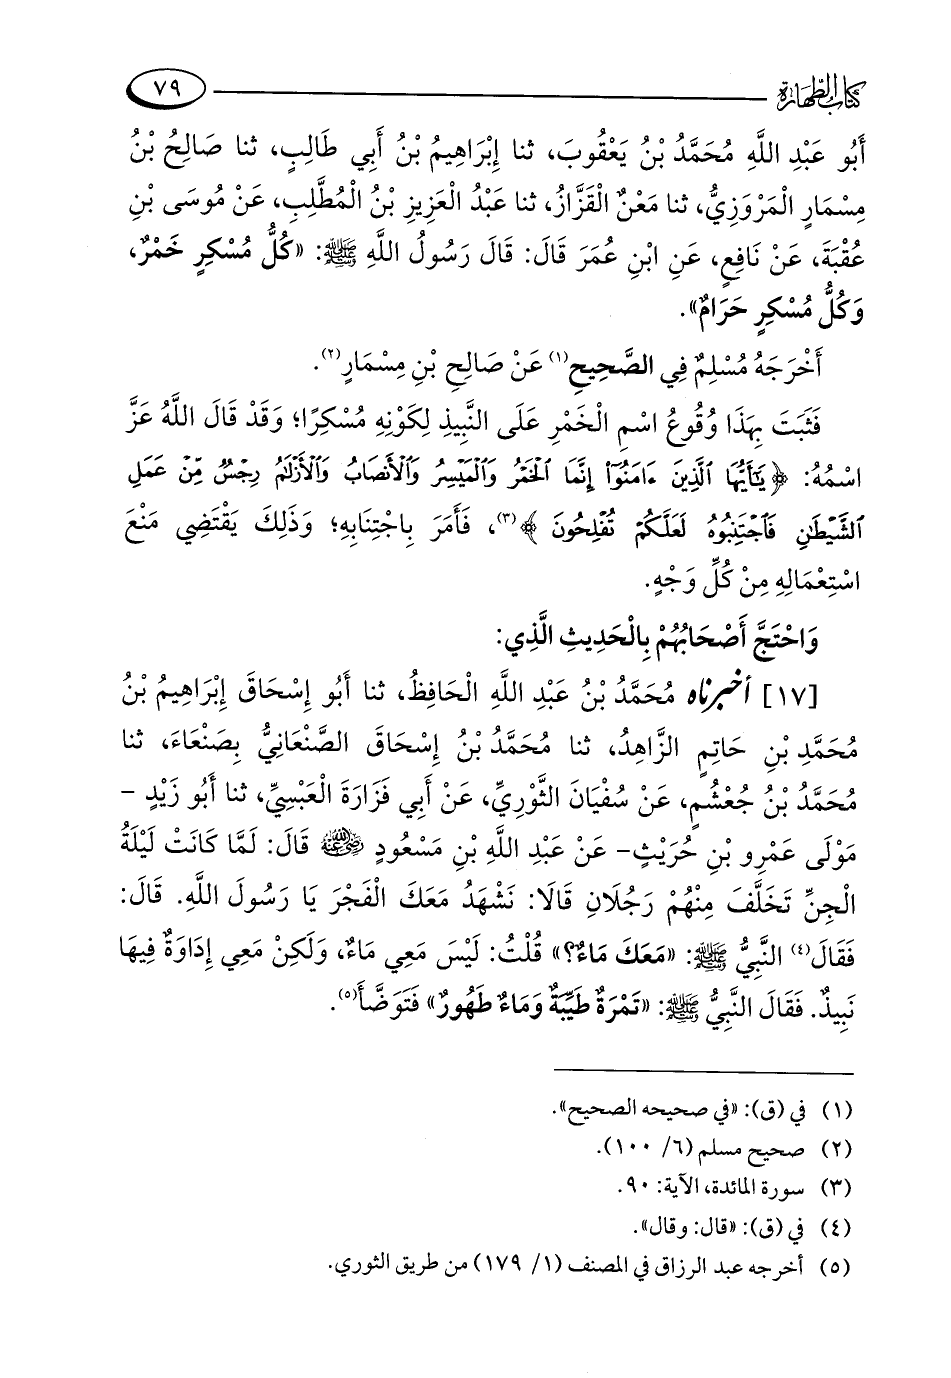 كتاب الطهارة
٧٩
أَبُو عَبْدِ اللَّهِ مُحَمَّدُ بْنُ يَعْقُوبَ، ثنا إِبْرَاهِيمُ بْنُ أَبِي طَالِبٍ، ثنا صَالِحُ بْنُ
مِسْمَارٍ الْمَرْوَزِيُّ، ثنا مَعْنٌ الْقَزَّازُ، ثنا عَبْدُ الْعَزِيزِ بْنُ الْمُطَّلِبِ، عَنْ مُوسَى بْنِ
عُقْبَةَ، عَنْ نَافِعٍ، عَنِ ابْنِ عُمَرَ قَالَ: قَالَ رَسُولُ اللَّهِ ﷺ: «كُلُّ مُسْكِرٍ خَمْرٌ،
وَكُلُّ مُسْكِرٍ حَرَامٌ».
أَخْرَجَهُ مُسْلِمٌ فِي الصَّحِيحِ(١) عَنْ صَالِحِ بْنِ مِسْمَارٍ(٢).
فَثَبَتَ بِهَذَا وُقُوعُ اسْمِ الْخَمْرِ عَلَى النَّبِيذِ لِكَوْنِهِ مُسْكِرًا؛ وَقَدْ قَالَ اللَّهُ عَزَّ
اسْمُهُ: ﴿يَٰٓأَيُّهَا ٱلَّذِينَ ءَامَنُوٓا۟ إِنَّمَا ٱلْخَمْرُ وَٱلْمَيْسِرُ وَٱلْأَنصَابُ وَٱلْأَزْلَٰمُ رِجْسٌ مِّنْ عَمَلِ
ٱلشَّيْطَٰنِ فَٱجْتَنِبُوهُ لَعَلَّكُمْ تُفْلِحُونَ﴾(٣)، فَأَمَرَ بِاجْتِنَابِهِ؛ وَذَلِكَ يَقْتَضِي مَنْعَ
اسْتِعْمَالِهِ مِنْ كُلِّ وَجْهٍ.
وَاحْتَجَّ أَصْحَابُهُمْ بِالْحَدِيثِ الَّذِي:
[١٧] أخبرناه مُحَمَّدُ بْنُ عَبْدِ اللَّهِ الْحَافِظُ، ثنا أَبُو إِسْحَاقَ إِبْرَاهِيمُ بْنُ
مُحَمَّدِ بْنِ حَاتِمٍ الزَّاهِدُ، ثنا مُحَمَّدُ بْنُ إِسْحَاقَ الصَّنْعَانِيُّ بِصَنْعَاءَ، ثنا
مُحَمَّدُ بْنُ جُعْشُمٍ، عَنْ سُفْيَانَ الثَّوْرِيِّ، عَنْ أَبِي فَزَارَةَ الْعَبْسِيِّ، ثنا أَبُو زَيْدٍ -
مَوْلَى عَمْرِو بْنِ حُرَيْثٍ- عَنْ عَبْدِ اللَّهِ بْنِ مَسْعُودٍ رضي الله عنه قَالَ: لَمَّا كَانَتْ لَيْلَةُ
الْجِنِّ تَخَلَّفَ مِنْهُمْ رَجُلَانِ قَالَا: نَشْهَدُ مَعَكَ الْفَجْرَ يَا رَسُولَ اللَّهِ. قَالَ:
فَقَالَ(٤) النَّبِيُّ ﷺ: «مَعَكَ مَاءٌ؟» قُلْتُ: لَيْسَ مَعِي مَاءٌ، وَلَكِنْ مَعِي إِدَاوَةٌ فِيهَا
نَبِيذٌ. فَقَالَ النَّبِيُّ ﷺ: «تَمْرَةٌ طَيِّبَةٌ وَمَاءٌ طَهُورٌ» فَتَوَضَّأَ(٥).
(١) في (ق): «في صحيحه الصحيح».
(٢) صحيح مسلم (٦/ ١٠٠).
(٣) سورة المائدة، الآية: ٩٠.
(٤) في (ق): «قال: وقال».
(٥) أخرجه عبد الرزاق في المصنف (١/ ١٧٩) من طريق الثوري.